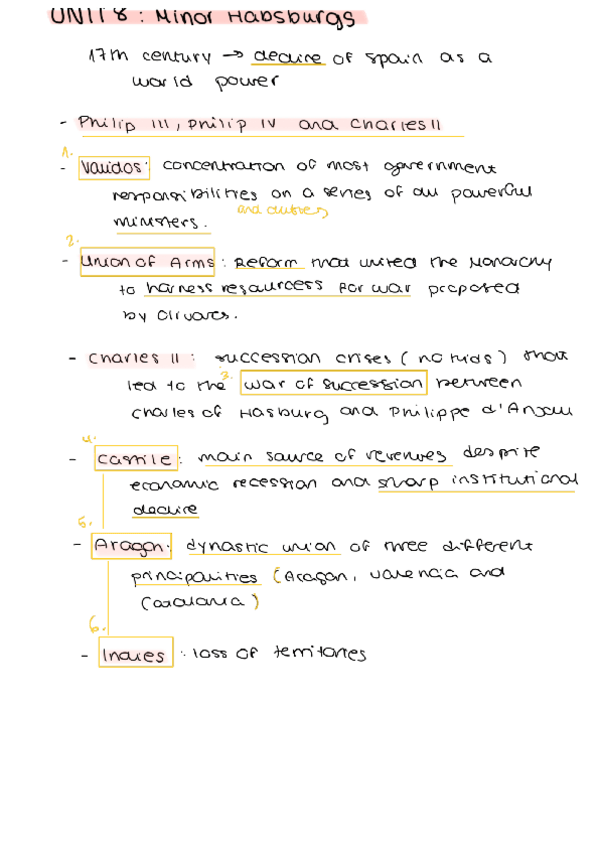 UNIT 8 : Minor Habsburgs
17th century → decline of Spain as a
world power
- Philip III, Philip IV and Charles II
1.
- Validos : concentration of most government
responsibilities on a series of all powerful
and duties
ministers.
2.
- Union of Arms : Reform that united the Monarchy
to harness resourcess for war proposed
by Olivares.
- Charles II : succession crises (no kids) that
3.
led to the war of succession between
Charles of Hasburg and Philippe d'Anjou
4.
- Castile : main source of revenues despite
economic recession and sharp institutional
decline
5.
- Aragon : dynastic union of three different
principalities (Aragon, Valencia and
Catalania)
6.
- Indies : loss of territories